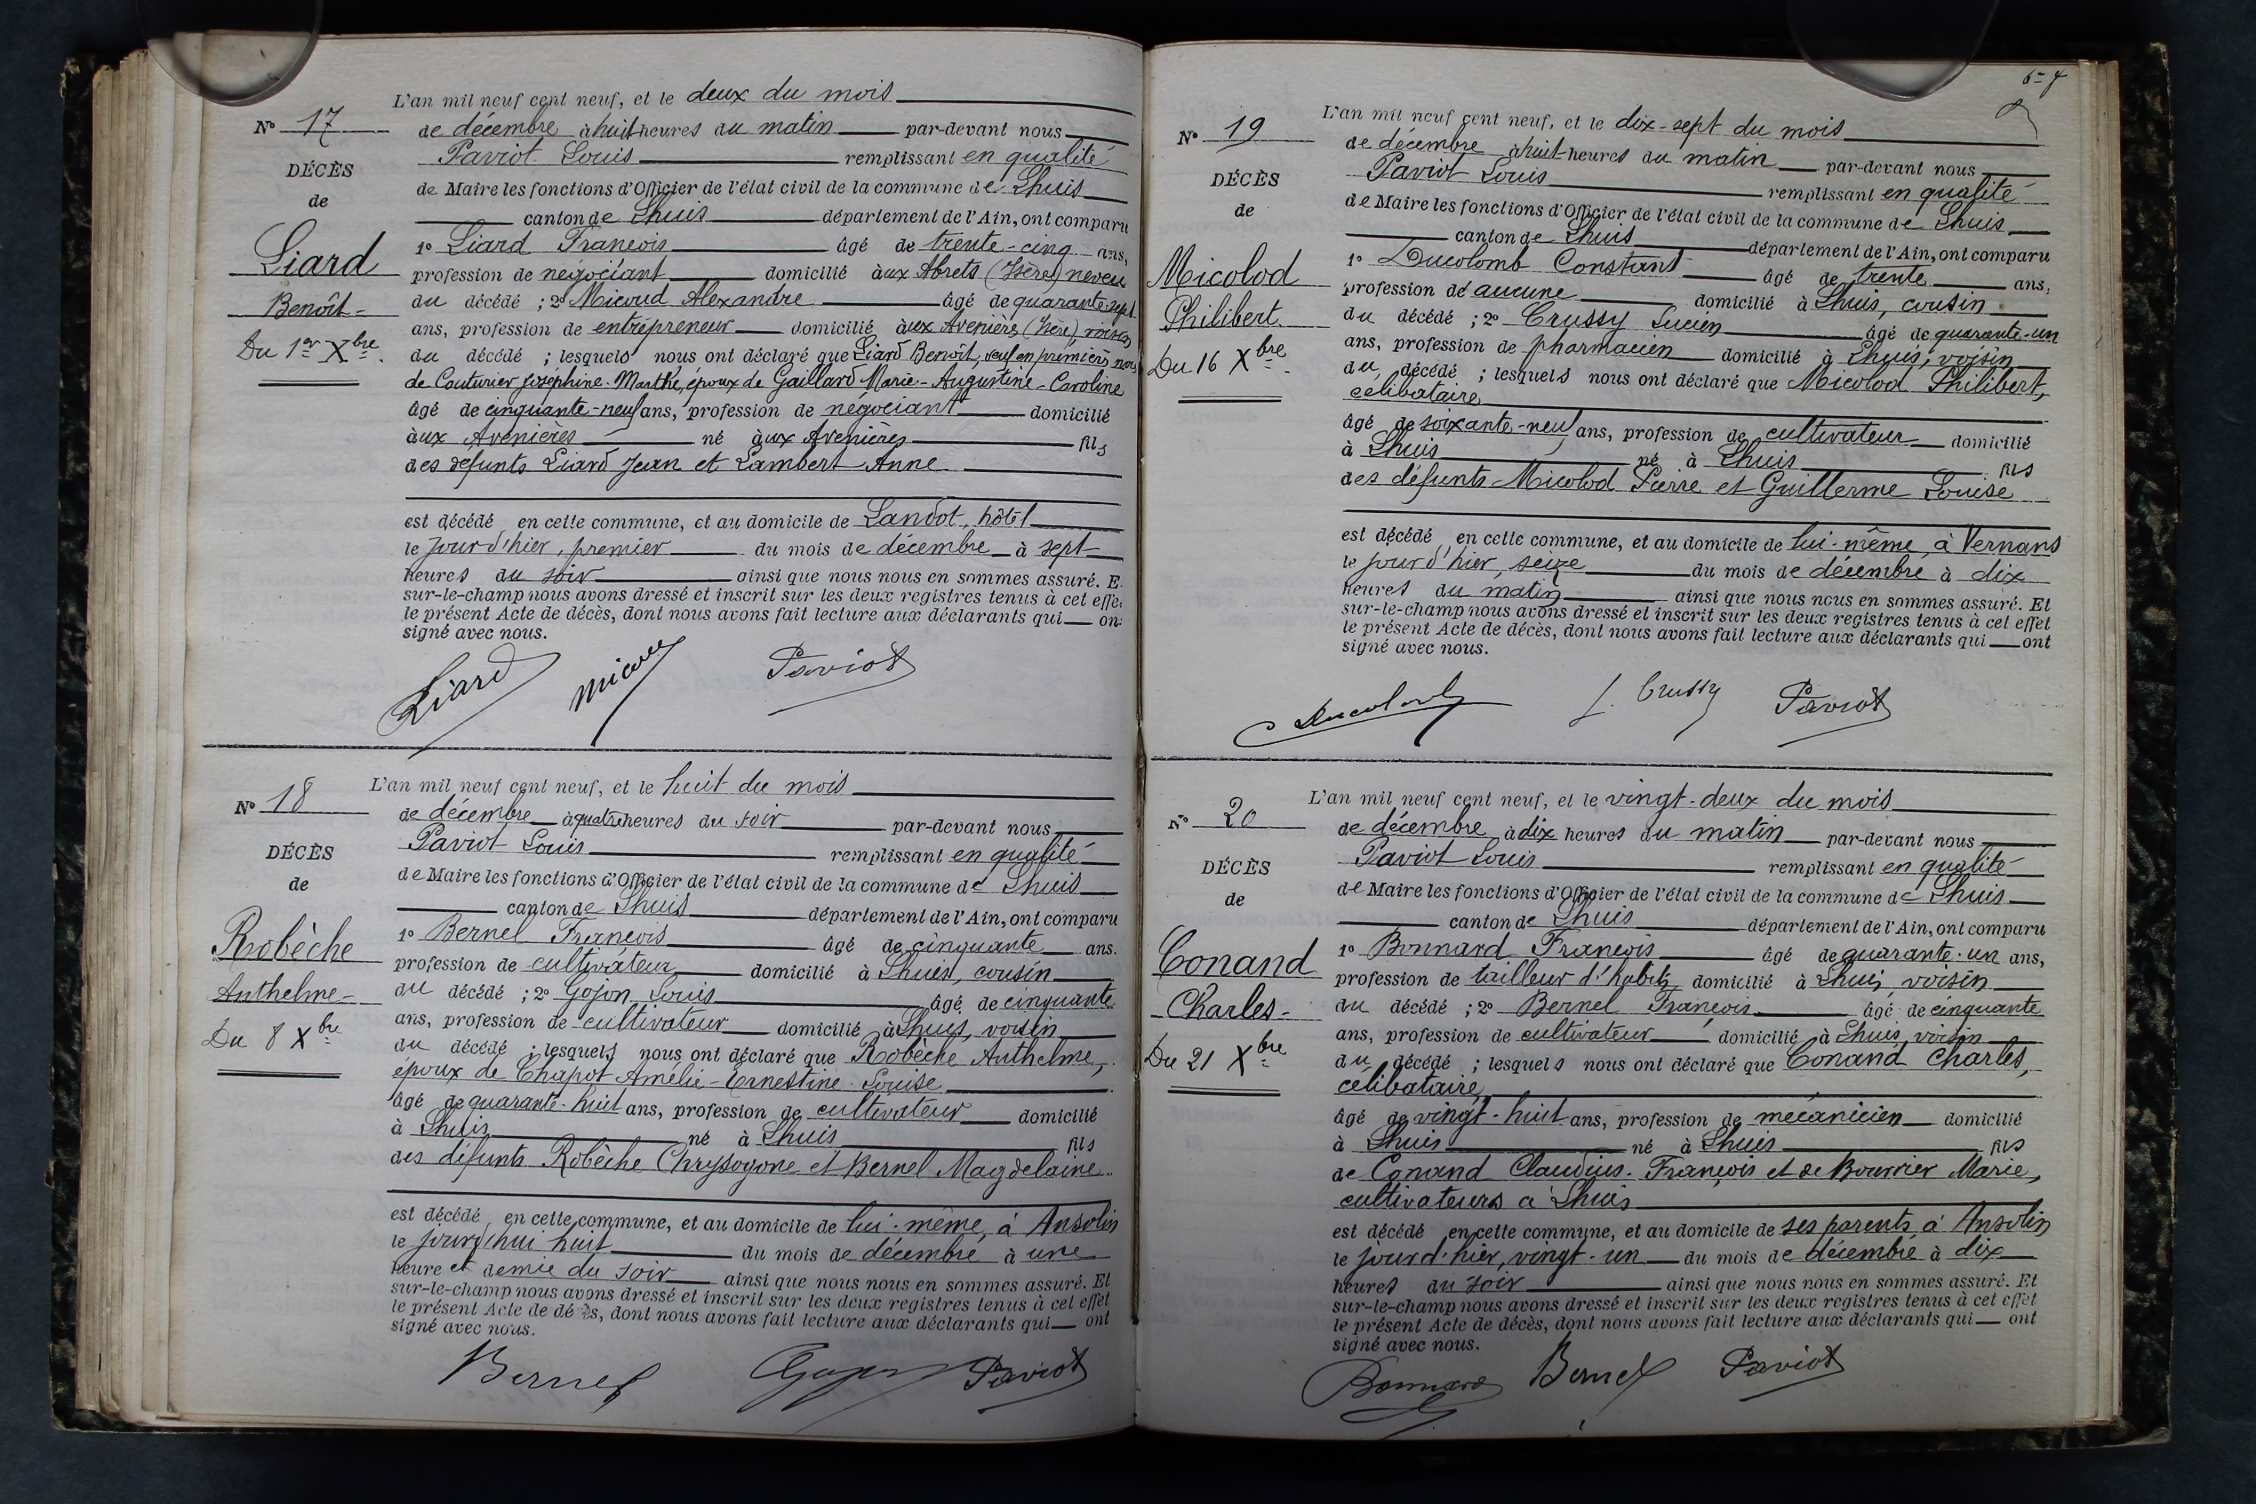 L'an mil neuf cent neuf, et le deux du mois
N° 17
de décembre à huit heures du matin par-devant nous
Paviot Louis remplissant en qualité
DÉCÈS
de Maire les fonctions d'Officier de l'état civil de la commune de Lhuis
de
canton de Lhuis département de l'Ain, ont comparu
Liard
1° Liard François âgé de trente-cinq ans,
profession de négociant domicilié aux Abrets (Isère) neveu
Benoît
du décédé ; 2° Micoud Alexandre âgé de quarante-sept
ans, profession de entrepreneur domicilié aux Avenières (Isère), voisin
Du 1er Xbre.
du décédé ; lesquels nous ont déclaré que Liard Benoît, veuf en premières noces
de Couturier Joséphine-Marthe, époux de Gaillard Marie-Augustine-Caroline
âgé de cinquante-neuf ans, profession de négociant domicilié
aux Avenières né aux Avenières fils
des défunts Liard Jean et Lambert Anne
est décédé en cette commune, et au domicile de Landot, hôtel
le jour d'hier, premier du mois de décembre à sept
heures du soir ainsi que nous nous en sommes assuré. E
sur-le-champ nous avons dressé et inscrit sur les deux registres tenus à cet effe
le présent Acte de décès, dont nous avons fait lecture aux déclarants qui on
signé avec nous.
Liard Micoud Paviot
L'an mil neuf cent neuf, et le huit du mois
N° 18
de décembre à quatre heures du soir par-devant nous
Paviot Louis remplissant en qualité
DÉCÈS
de Maire les fonctions d'Officier de l'état civil de la commune de Lhuis
de
canton de Lhuis département de l'Ain, ont comparu
Robèche
1° Bernel François âgé de cinquante ans.
profession de cultivateur domicilié à Lhuis, cousin
Anthelme
du décédé ; 2° Gojon Louis âgé de cinquante
ans, profession de cultivateur domicilié à Lhuis, voisin
Du 8 Xbre
du décédé ; lesquels nous ont déclaré que Robèche Anthelme,
époux de Chapot Amélie-Ernestine-Louise
âgé de quarante-huit ans, profession de cultivateur domicilié
à Lhuis né à Lhuis fils
des défunts Robèche Chrysogone et Bernel Magdelaine
est décédé en cette commune, et au domicile de lui-même, à Ansolin
le jourd'hui huit du mois de décembre à une
heure et demie du soir ainsi que nous nous en sommes assuré. Et
sur-le-champ nous avons dressé et inscrit sur les deux registres tenus à cet effet
le présent Acte de décès, dont nous avons fait lecture aux déclarants qui ont
signé avec nous.
Bernel Gojon Paviot
L'an mil neuf cent neuf, et le dix-sept du mois
N° 19
de décembre à huit heures du matin par-devant nous
Paviot Louis remplissant en qualité
DÉCÈS
de Maire les fonctions d'Officier de l'état civil de la commune de Lhuis
de
canton de Lhuis département de l'Ain, ont comparu
Micolod
1° Ducolomb Constant âgé de trente ans,
profession de aucune domicilié à Lhuis, cousin
Philibert
du décédé ; 2° Crussy Lucien âgé de quarante-un
ans, profession de pharmacien domicilié à Lhuis, voisin
Du 16 Xbre.
du décédé ; lesquels nous ont déclaré que Micolod Philibert,
célibataire
âgé de soixante-neuf ans, profession de cultivateur domicilié
à Lhuis né à Lhuis fils
des défunts Micolod Pierre et Guillerme Louise
est décédé en cette commune, et au domicile de lui-même, à Vernans
le jour d'hier, seize du mois de décembre à dix
heures du matin ainsi que nous nous en sommes assuré. Et
sur-le-champ nous avons dressé et inscrit sur les deux registres tenus à cet effet
le présent Acte de décès, dont nous avons fait lecture aux déclarants qui ont
signé avec nous.
Ducolomb L. Crussy Paviot
L'an mil neuf cent neuf, et le vingt-deux du mois
N° 20
de décembre à dix heures du matin par-devant nous
Paviot Louis remplissant en qualité
DÉCÈS
de Maire les fonctions d'Officier de l'état civil de la commune de Lhuis
de
canton de Lhuis département de l'Ain, ont comparu
Conand
1° Bonnard François âgé de quarante-un ans,
profession de tailleur d'habits domicilié à Lhuis, voisin
Charles
du décédé ; 2° Bernel François âgé de cinquante
ans, profession de cultivateur domicilié à Lhuis, voisin
Du 21 Xbre
du décédé ; lesquels nous ont déclaré que Conand Charles,
célibataire,
âgé de vingt-huit ans, profession de mécanicien domicilié
à Lhuis né à Lhuis fils
de Conand Claudius-François et de Bourrier Marie,
cultivateurs à Lhuis
est décédé en cette commune, et au domicile de ses parents à Ansolin
le jour d'hier, vingt-un du mois de décembre à dix
heures du soir ainsi que nous nous en sommes assuré. Et
sur-le-champ nous avons dressé et inscrit sur les deux registres tenus à cet effet
le présent Acte de décès, dont nous avons fait lecture aux déclarants qui ont
signé avec nous.
Bonnard Bernel Paviot